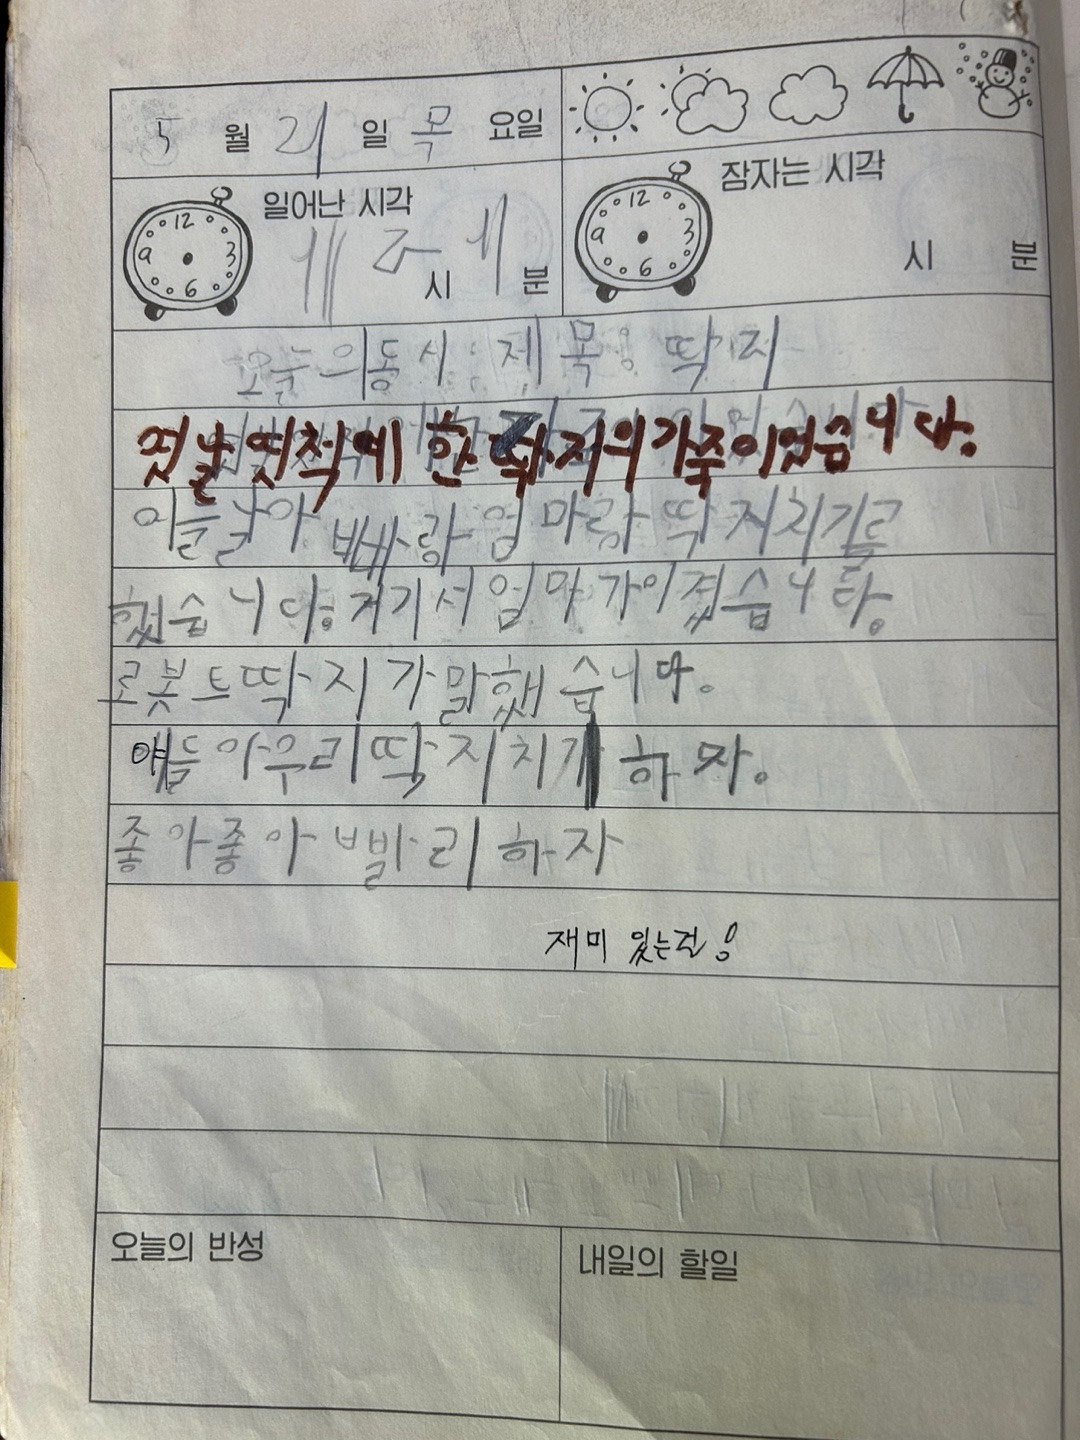 5 월 21 일 목 요일
일어난 시각
시 분
잠자는 시각
시 분
오늘의동시 : 제목 : 딱지
옛날옛척에 한 딱지의가족이있습니다.
어들날아빠랑엄마랑딱지치기를
했습니다. 저기서엄마가이겼습니다.
로봇트딱지가말했습니다.
얘들아우리딱지치기하자.
좋아좋아빨리하자
재미 있는걸!
오늘의 반성
내일의 할일